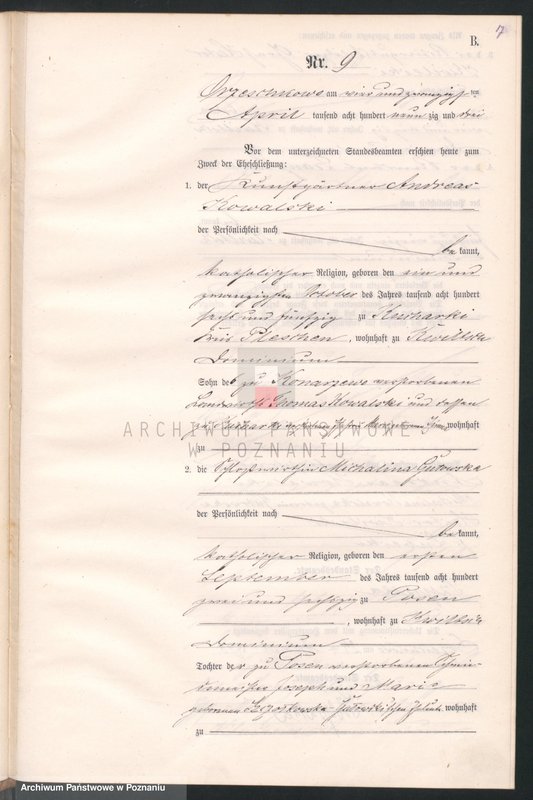 17
B.
Nr. 9
Orzeschkowo am vier und zwanzigsten
April tausend acht hundert neun zig und drei
Vor dem unterzeichneten Standesbeamten erschien heute zum
Zweck der Eheschließung:
1. der Kunstgärtner Andreas
Kowalski
der Persönlichkeit nach
be kannt,
katholischer Religion, geboren den ein und
zwanzigsten October des Jahres tausend acht hundert
sechs und fünfzig zu Kucharki
Kreis Pleschen, wohnhaft zu Kwiltsch
Dominium
Sohn des zu Konarzewo verstorbenen
Thomas Kowalski und dessen
zu Kucharki wohnhaft
zu
ARCHIWUM PAŃSTWOWE
W POZNANIU
2. die Michalina Gutowska
der Persönlichkeit nach
be kannt,
katholischer Religion, geboren den ersten
September des Jahres tausend acht hundert
zwei und sechszig zu Posen
, wohnhaft zu Kwiltsch
Dominium
Tochter der zu Posen verstorbenen Schmie-
demeister Joseph und Marie
geborenen Gutowski'schen Eheleute wohnhaft
zu
Archiwum Państwowe w Poznaniu